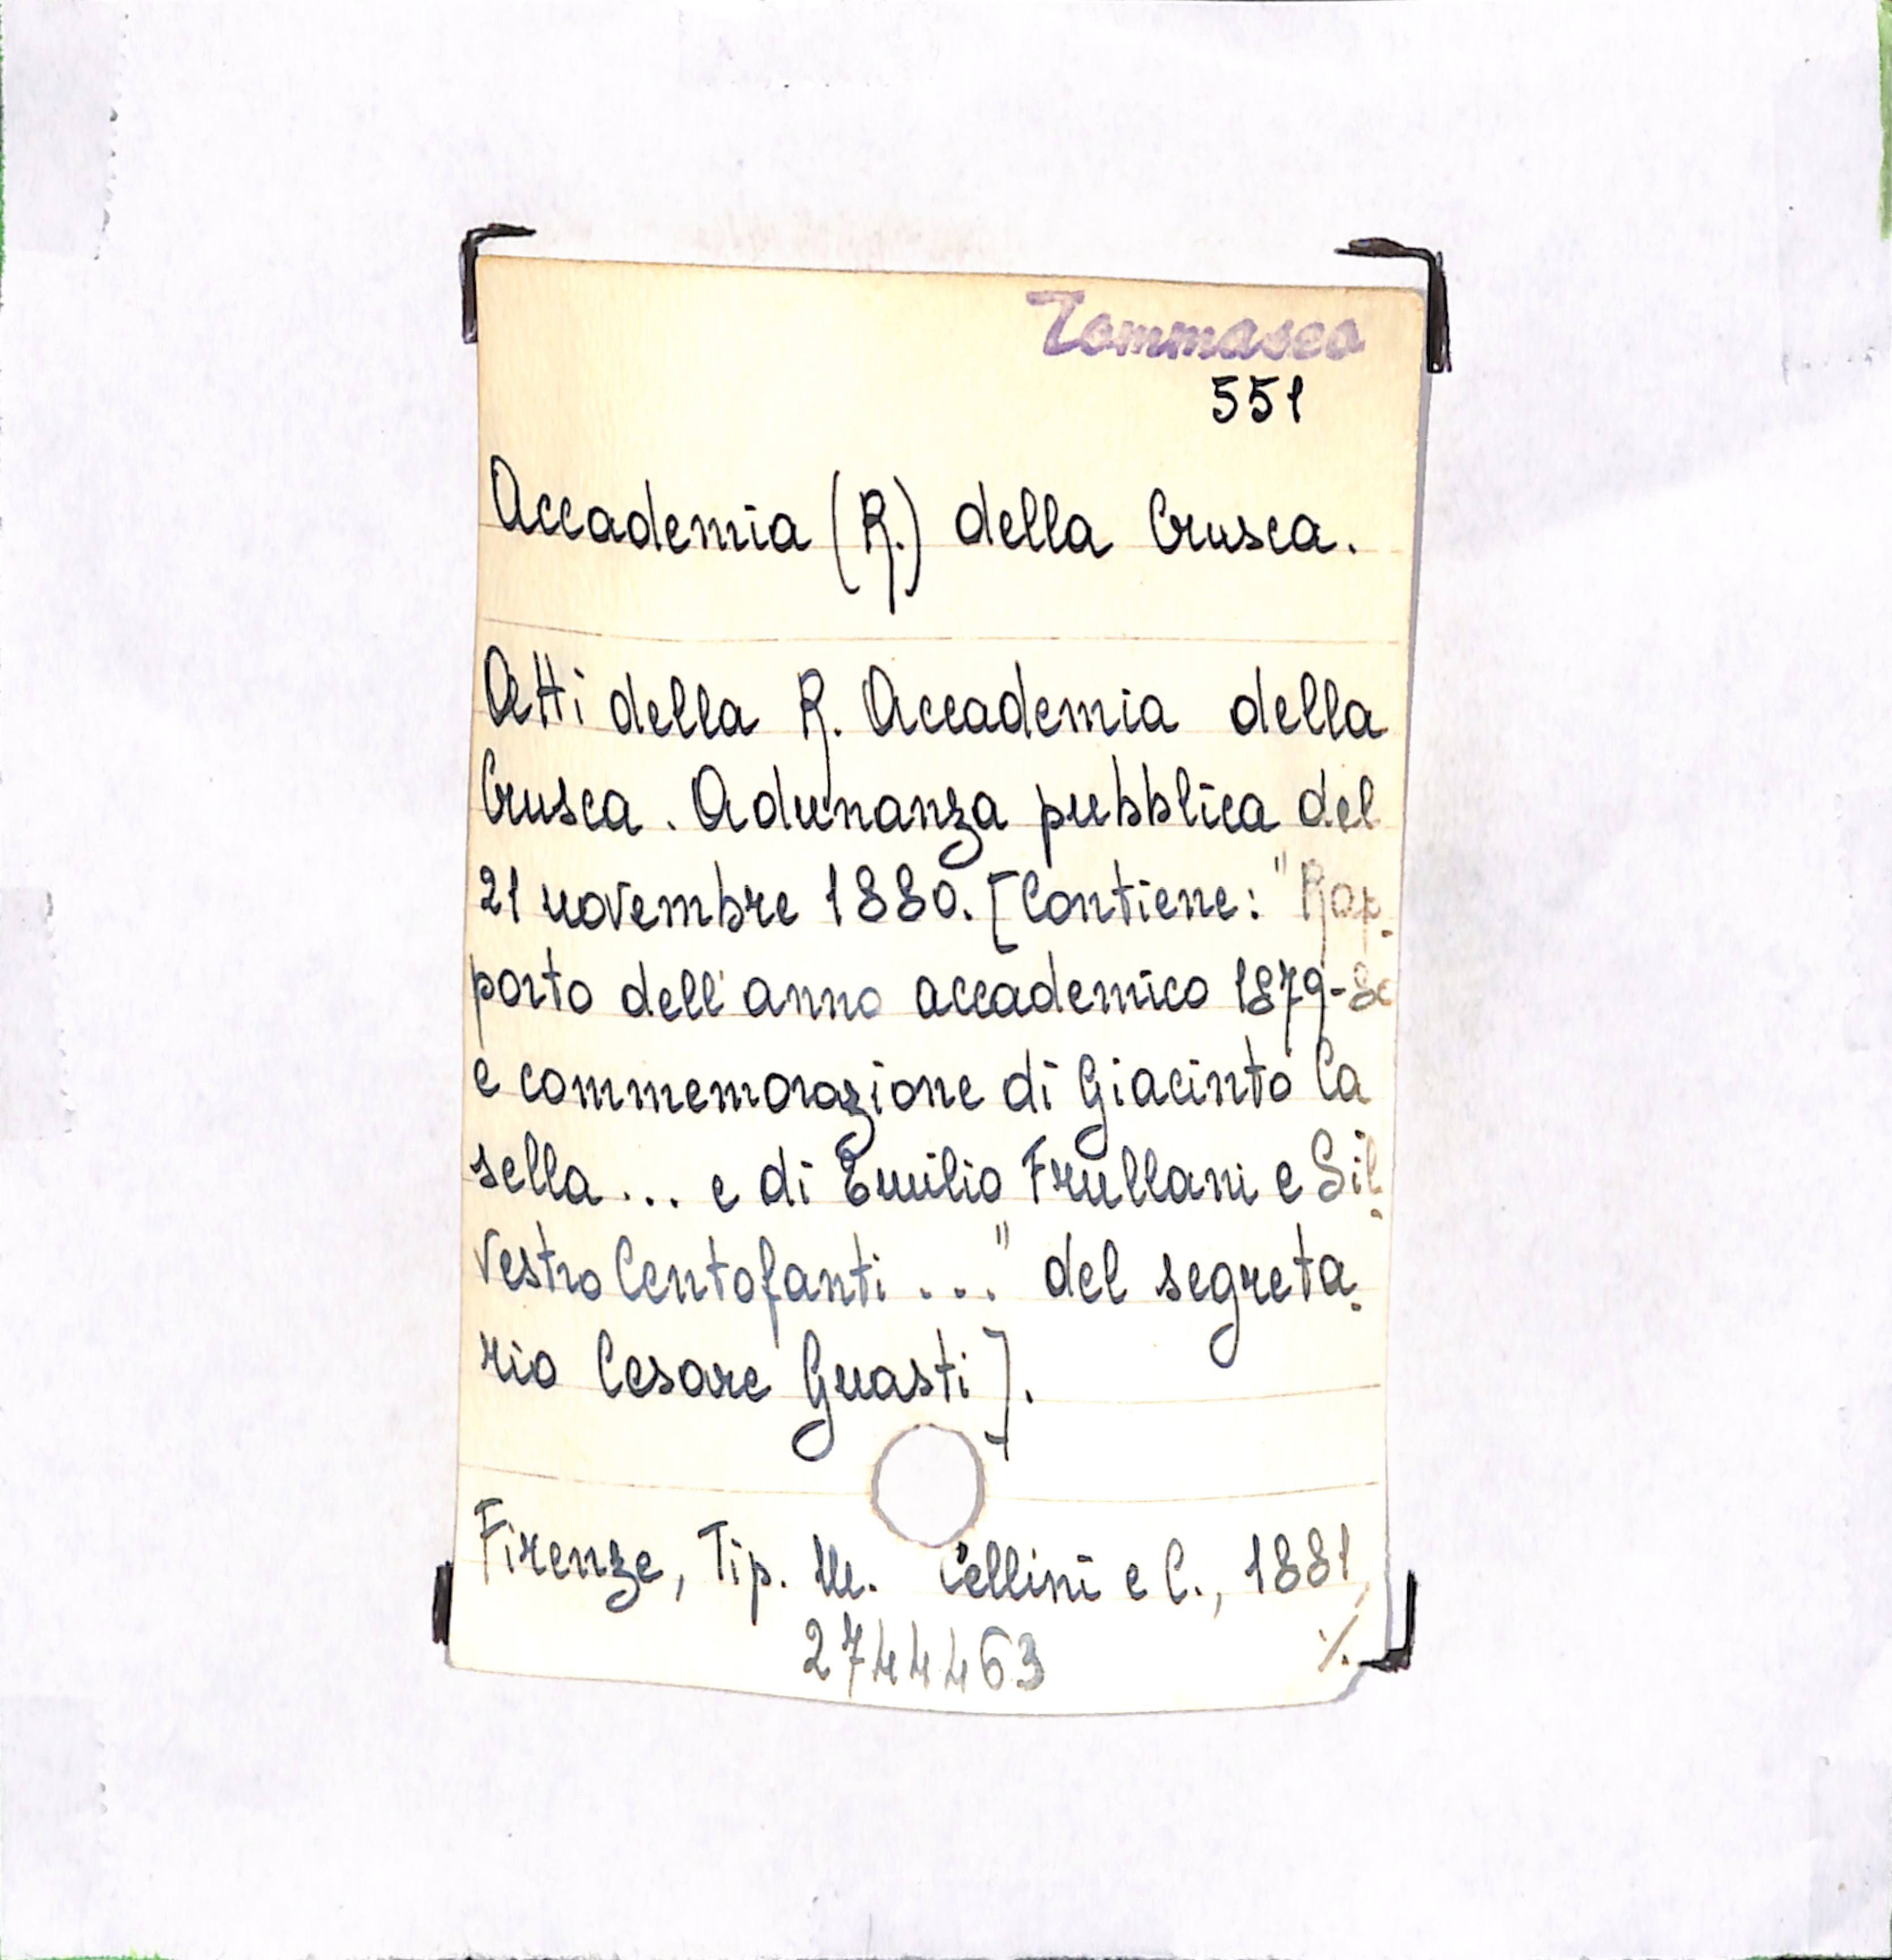 Tommaseo
551
Accademia (R.) della Crusca.
Atti della R. Accademia della
Crusca. Adunanza pubblica del
21 novembre 1880. [Contiene: "Rap-
porto dell'anno accademico 1879-80
e commemorazione di Giacinto Ca
sella... e di Emilio Frullani e Sil-
vestro Centofanti ..." del segreta-
rio Cesare Guasti].
Firenze, Tip. M. Cellini e C., 1881
2744463 ./.